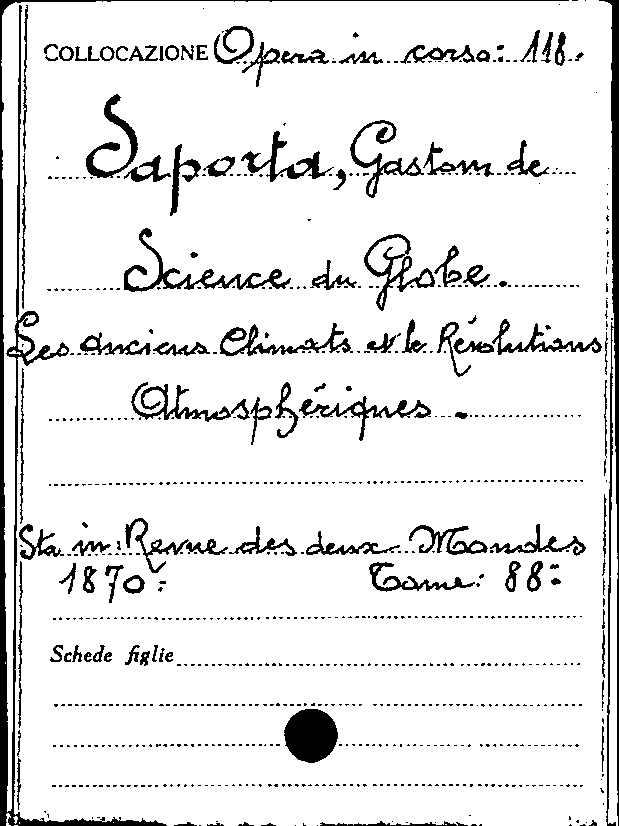 COLLOCAZIONE Opera in corso: 118.
Saporta, Gastom de
Science du Globe.
Les anciens Climats et le Révolutions
Atmosphériques.
Sta in: Revue des deux Mondes
1870: Tome: 88:
Schede figlie